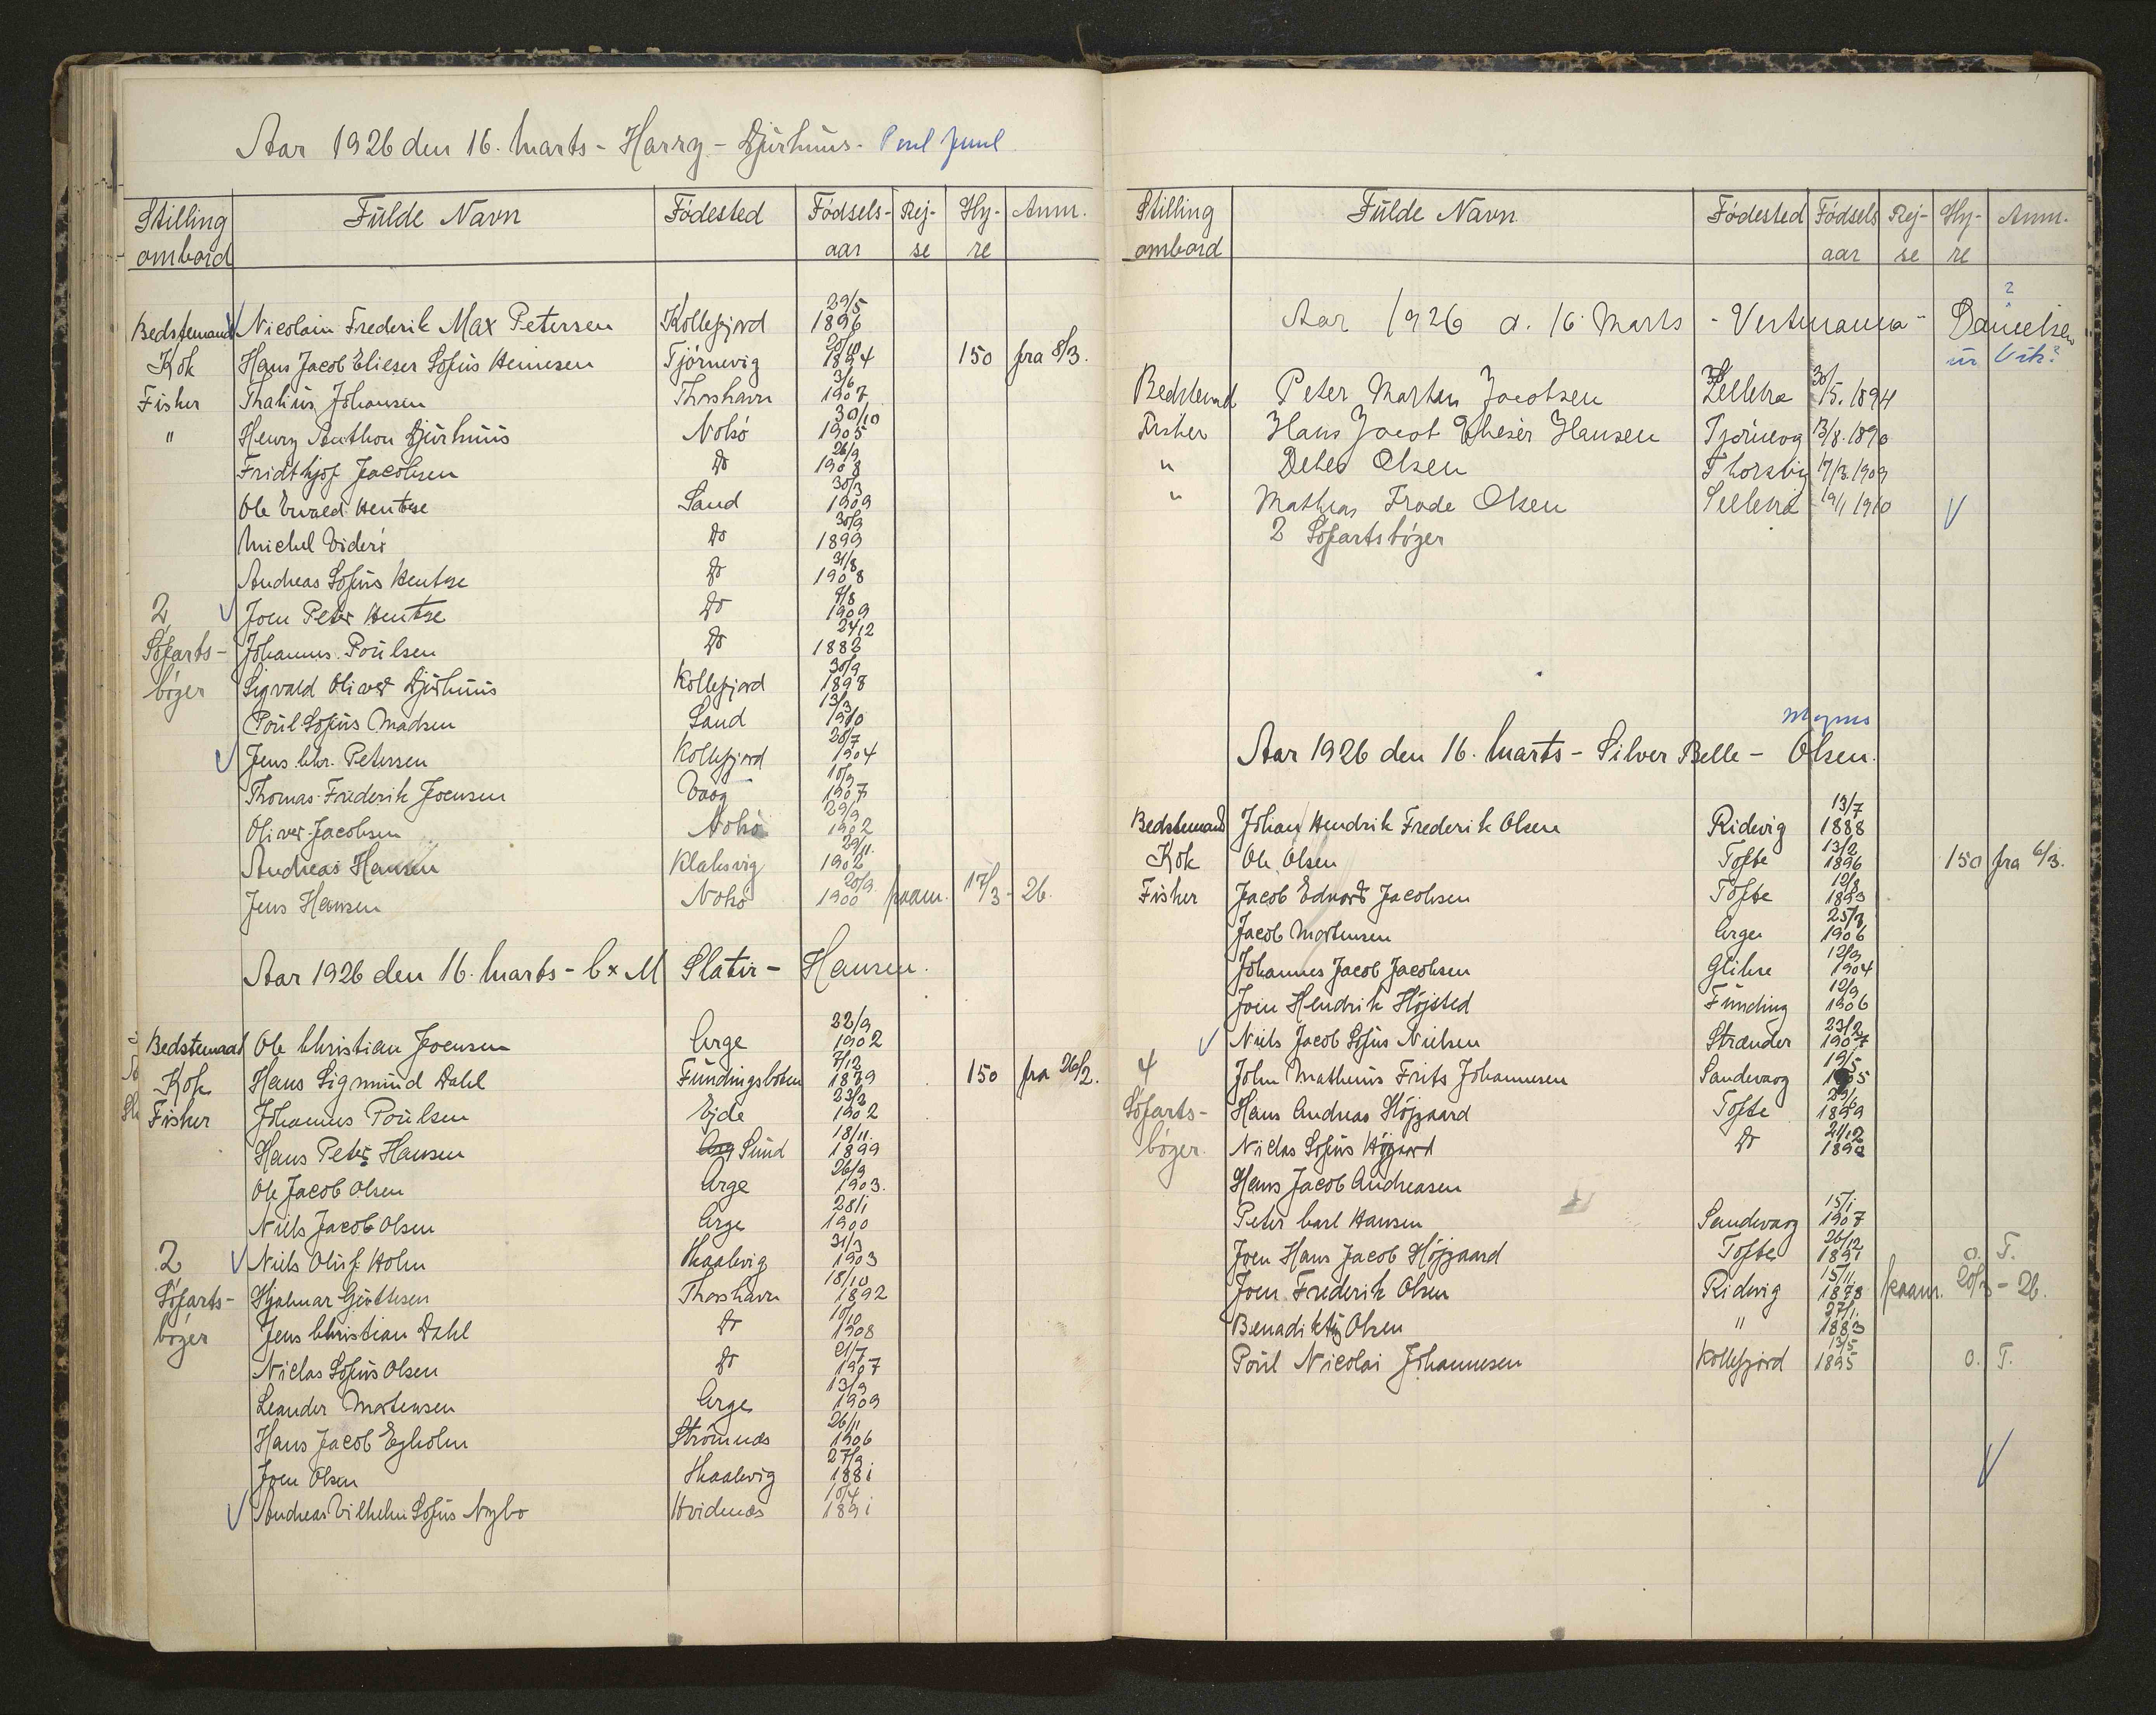 Aar 1926 den 16. Marts - Harry - Djurhuus - Poul Juul
Stilling ombord Fulde Navn Födested Födsels-aar Rej-se Hy-re Anm.
Bedstemand Nicolain Frederik Max Petersen Kollefjord 29/5 1896
Kok Hans Jacob Elieser Sofus Heinesen Tjörnevig 1894 150 fra 8/3.
Fisker Thalius Johansen Thorshavn 3/6 1907
" Henry Anthon Djurhuus Nolsö 30/10 1905
Fridthjof Jacobsen Do 26/9 1908
Ole Evald Hentze Sand 30/3 1909
Michel Viderö Do 30/9 1899
Andreas Sofus Hentze Do 31/8 1908
2 Joen Peter Hentze Do 9/8 1909
Söfarts- Johannes Poulsen Do 24/12 1882
böger Sigvald Oliver Djurhuus Kollefjord 30/9 1898
Poul Sofus Madsen Sand 13/3 1910
Jens Chr. Petersen Kollefjord 28/7 1904
Thomas Frederik Joensen Vaag 10/9 1907
Oliver Jacobsen Nolsö 29/9 1902
Andreas Hansen Klaksvig 29/11 1902
Jens Hansen Nolsö 20/9 1900 paam. 17/3 - 26.
Aar 1926 den 16. Marts - C x M Slatir - Hansen.
Bedstemand Ole Christian Joensen Arge 22/9 1902
Kok Hans Sigmund Dahl Fundingsbotn 7/12 1879 150 fra 26/2.
Fisker Johannes Poulsen Ejde 23/3 1902
Hans Peter Hansen Sund 18/11. 1899
Ole Jacob Olsen Arge 26/9 1903.
Niels Jacob Olsen Arge 28/1 1900
2 Niels Oluf Holm Skaalevig 31/3 1903
Söfarts- Hjalmar Guttesen Thorshavn 18/10 1892
böger Jens Christian Dahl Do 10/10 1908
Niclas Sofus Olsen Do 21/7 1907
Leander Mortensen Arge 13/9 1909
Hans Jacob Egholm Strömnæs 26/11 1906
Joen Olsen Skaalevig 27/9 1881
Andreas Vilhelm Sofus Nybo Hvidenæs 10/4 1891
Stilling ombord Fulde Navn Födested Födsels aar Rej-se Hy-re Anm.
?
Aar 1926 d. 16 Marts - Vestmanna - Danielsen
úr Vik?
Bedstemd Peter Morten Jacobsen Selletræ 30/5. 1894
Fisker Hans Jacob Elieser Hansen Tjörnevig 13/8. 1890
" Detlev Olsen Thorsvig 17/3. 1909
" Mathias Frode Olsen Selletræ 19/1 1910
2 Söfartsböger
Magnus
Aar 1926 den 16. Marts - Silver Belle - Olsen.
Bedstemand Johan Hendrik Frederik Olsen Ridevig 13/7 1888
Kok Ole Olsen Tofte 13/2 1896 150 fra 6/3.
Fisker Jacob Edvard Jacobsen Tofte 12/8 1893
Jacob Mortensen Arge 1906
Johannes Jacob Jacobsen Glibre 12/9 1904
Joen Hendrik Höjsted Funding 12/9 1906
Niels Jacob Sofus Nielsen Strænder 23/2 1907
4 John Matheus Frits Johannesen Sandevaag 19/5
Söfarts- Hans Andreas Höjgaard Tofte 1899
böger. Niclas Sofus Höjgaard Do 21/12 1890
Hans Jacob Andreasen
Peter Carl Hansen Sandevaag 15/1 1907
Joen Hans Jacob Höjgaard Tofte 26/12 1891 o. T.
Joen Frederik Olsen Ridevig 15/11 1878 paam. 20/3 - 26.
Benadiktus Olsen " 27/1. 1883
Poul Nicolai Johannesen Kollefjord 13/5 1895 o. T.